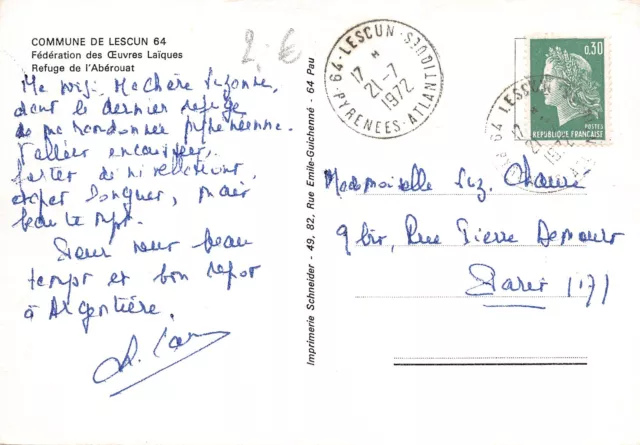 COMMUNE DE LESCUN 64
Fédération des Œuvres Laïques
Refuge de l'Abérouat
2 €
Me voici Ma Chère Suzanne,
dans le dernier refuge
de ma randonnée pyrénéenne.
Vallées
fortes dénivellations,
étapes longues, mais
beau temps.
beau
temps et bon repos
à Argentière.
64-LESCUN
17 H
21-7
1972
PYRENEES-ATLANTIQUES
0,30
POSTES
REPUBLIQUE FRANCAISE
64 LESCUN
Mademoiselle Suz.
9 bis, Rue Pierre Demours
Paris (17)
Imprimerie Schneider - 49, 82, Rue Emile-Guichenné - 64 Pau